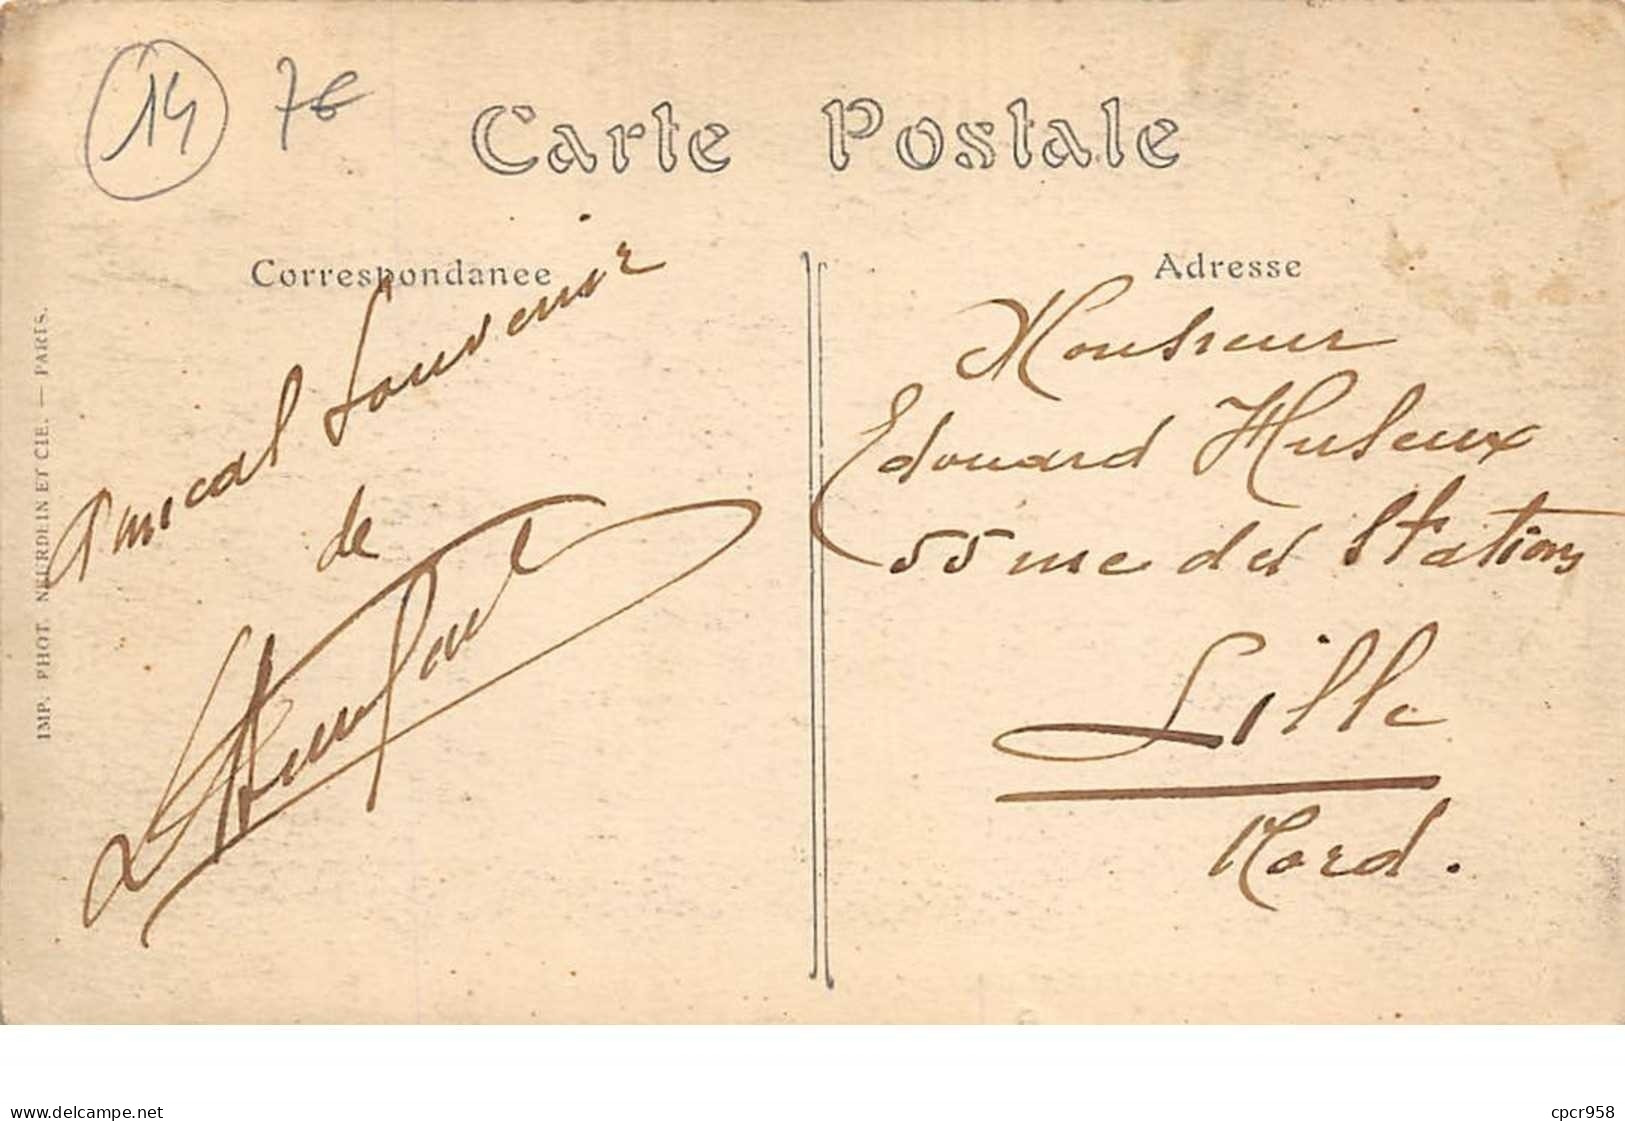 14 7€
Carte Postale
Correspondance
Adresse
IMP. PHOT. NEURDEIN ET CIE. — PARIS.
Amical Souvenir
de
Monsieur
Edouard Huleux
55 rue des Stations
Lille
Nord.
www.delcampe.net
cpcr958